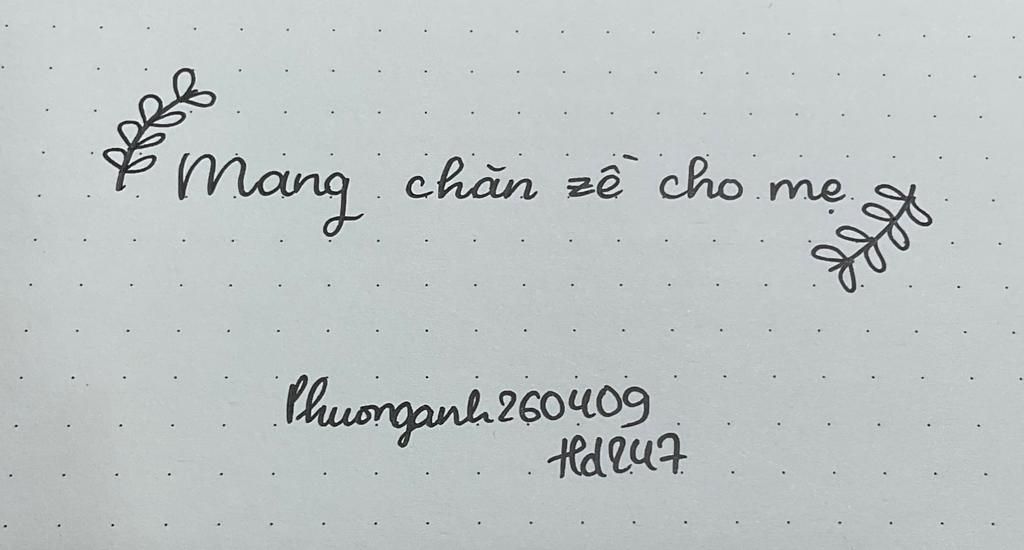 Mang chăn zề cho mẹ
Phuonganh260409
Hd247